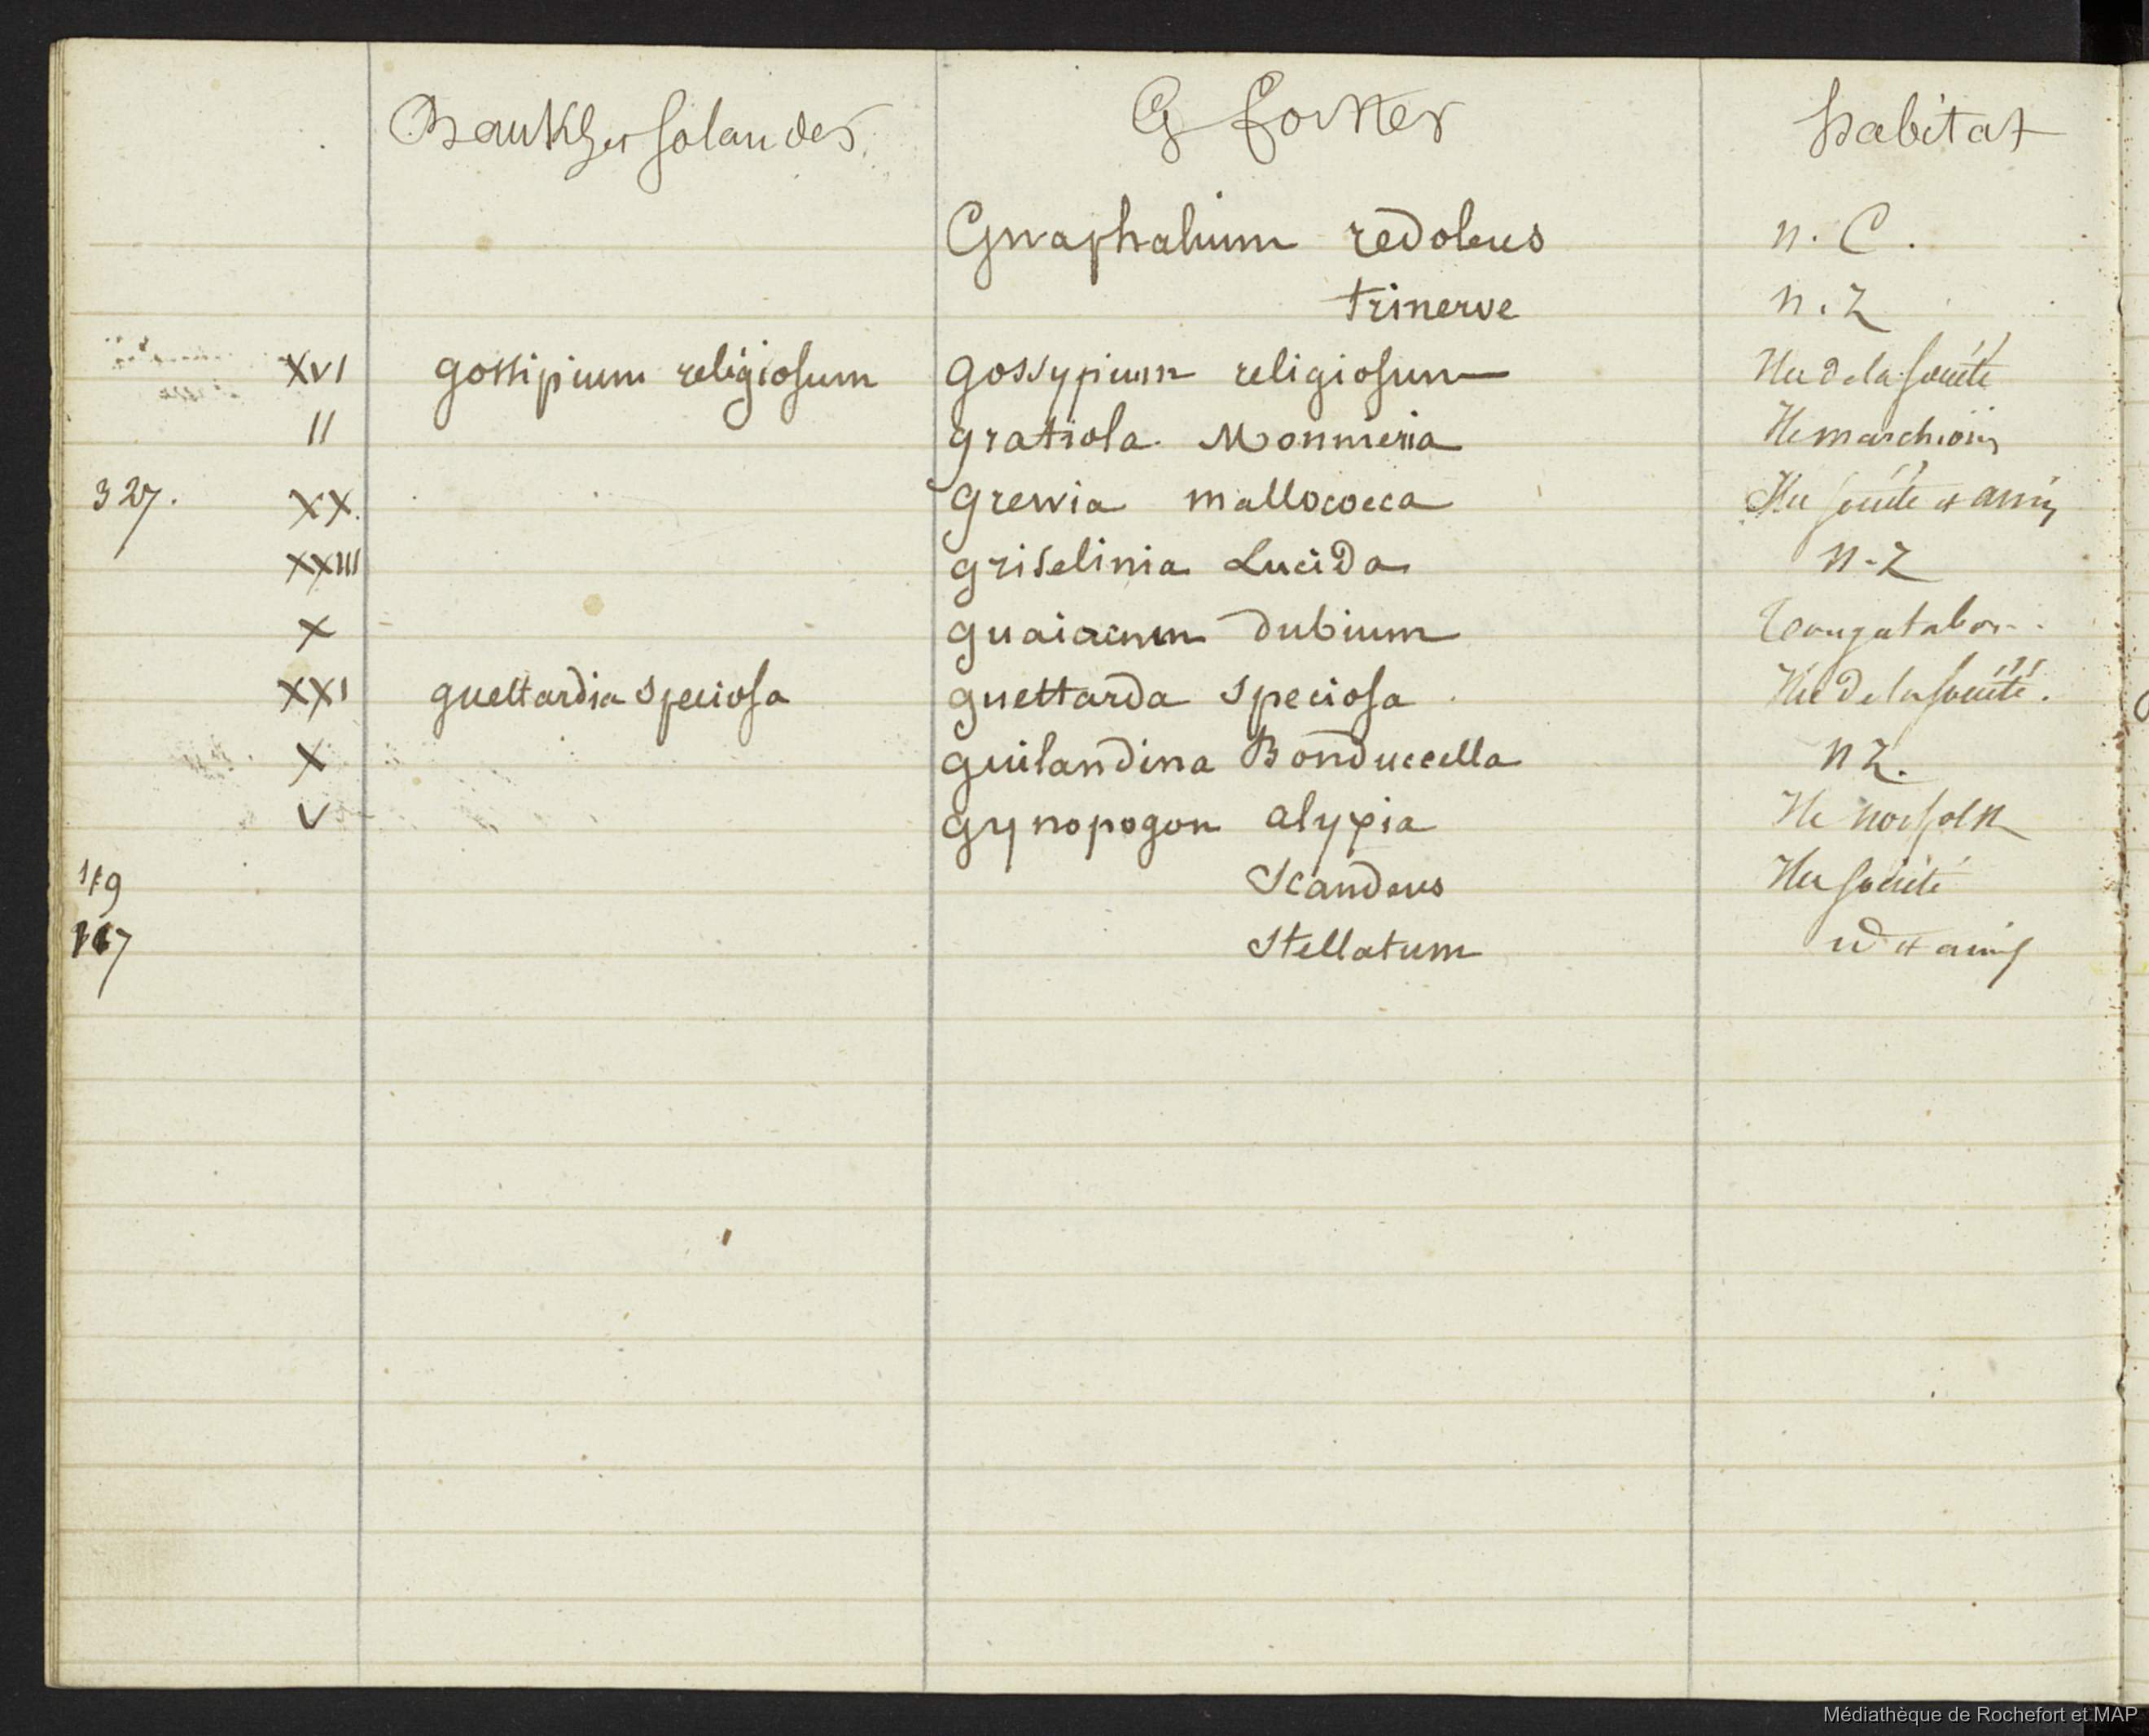 Banks et Solander G forster habitat
Gnaphalium redolens n. C.
trinerve n. Z
XVI gossipium religiosum gossypium religiosum Iles de la société
II gratiola Monnieria Ile
327. XX. grewia mallococca Iles société et amis
XXIII griselinia Lucida n-Z
X guaiacum dubium
XXI guettardia speciosa guettarda speciosa Iles de la société.
X guilandina Bonduccella n Z.
V gynopogon alyxia Ile norfolk
119 Scandens Iles société
117 Stellatum id et amis
Médiathèque de Rochefort et MAP